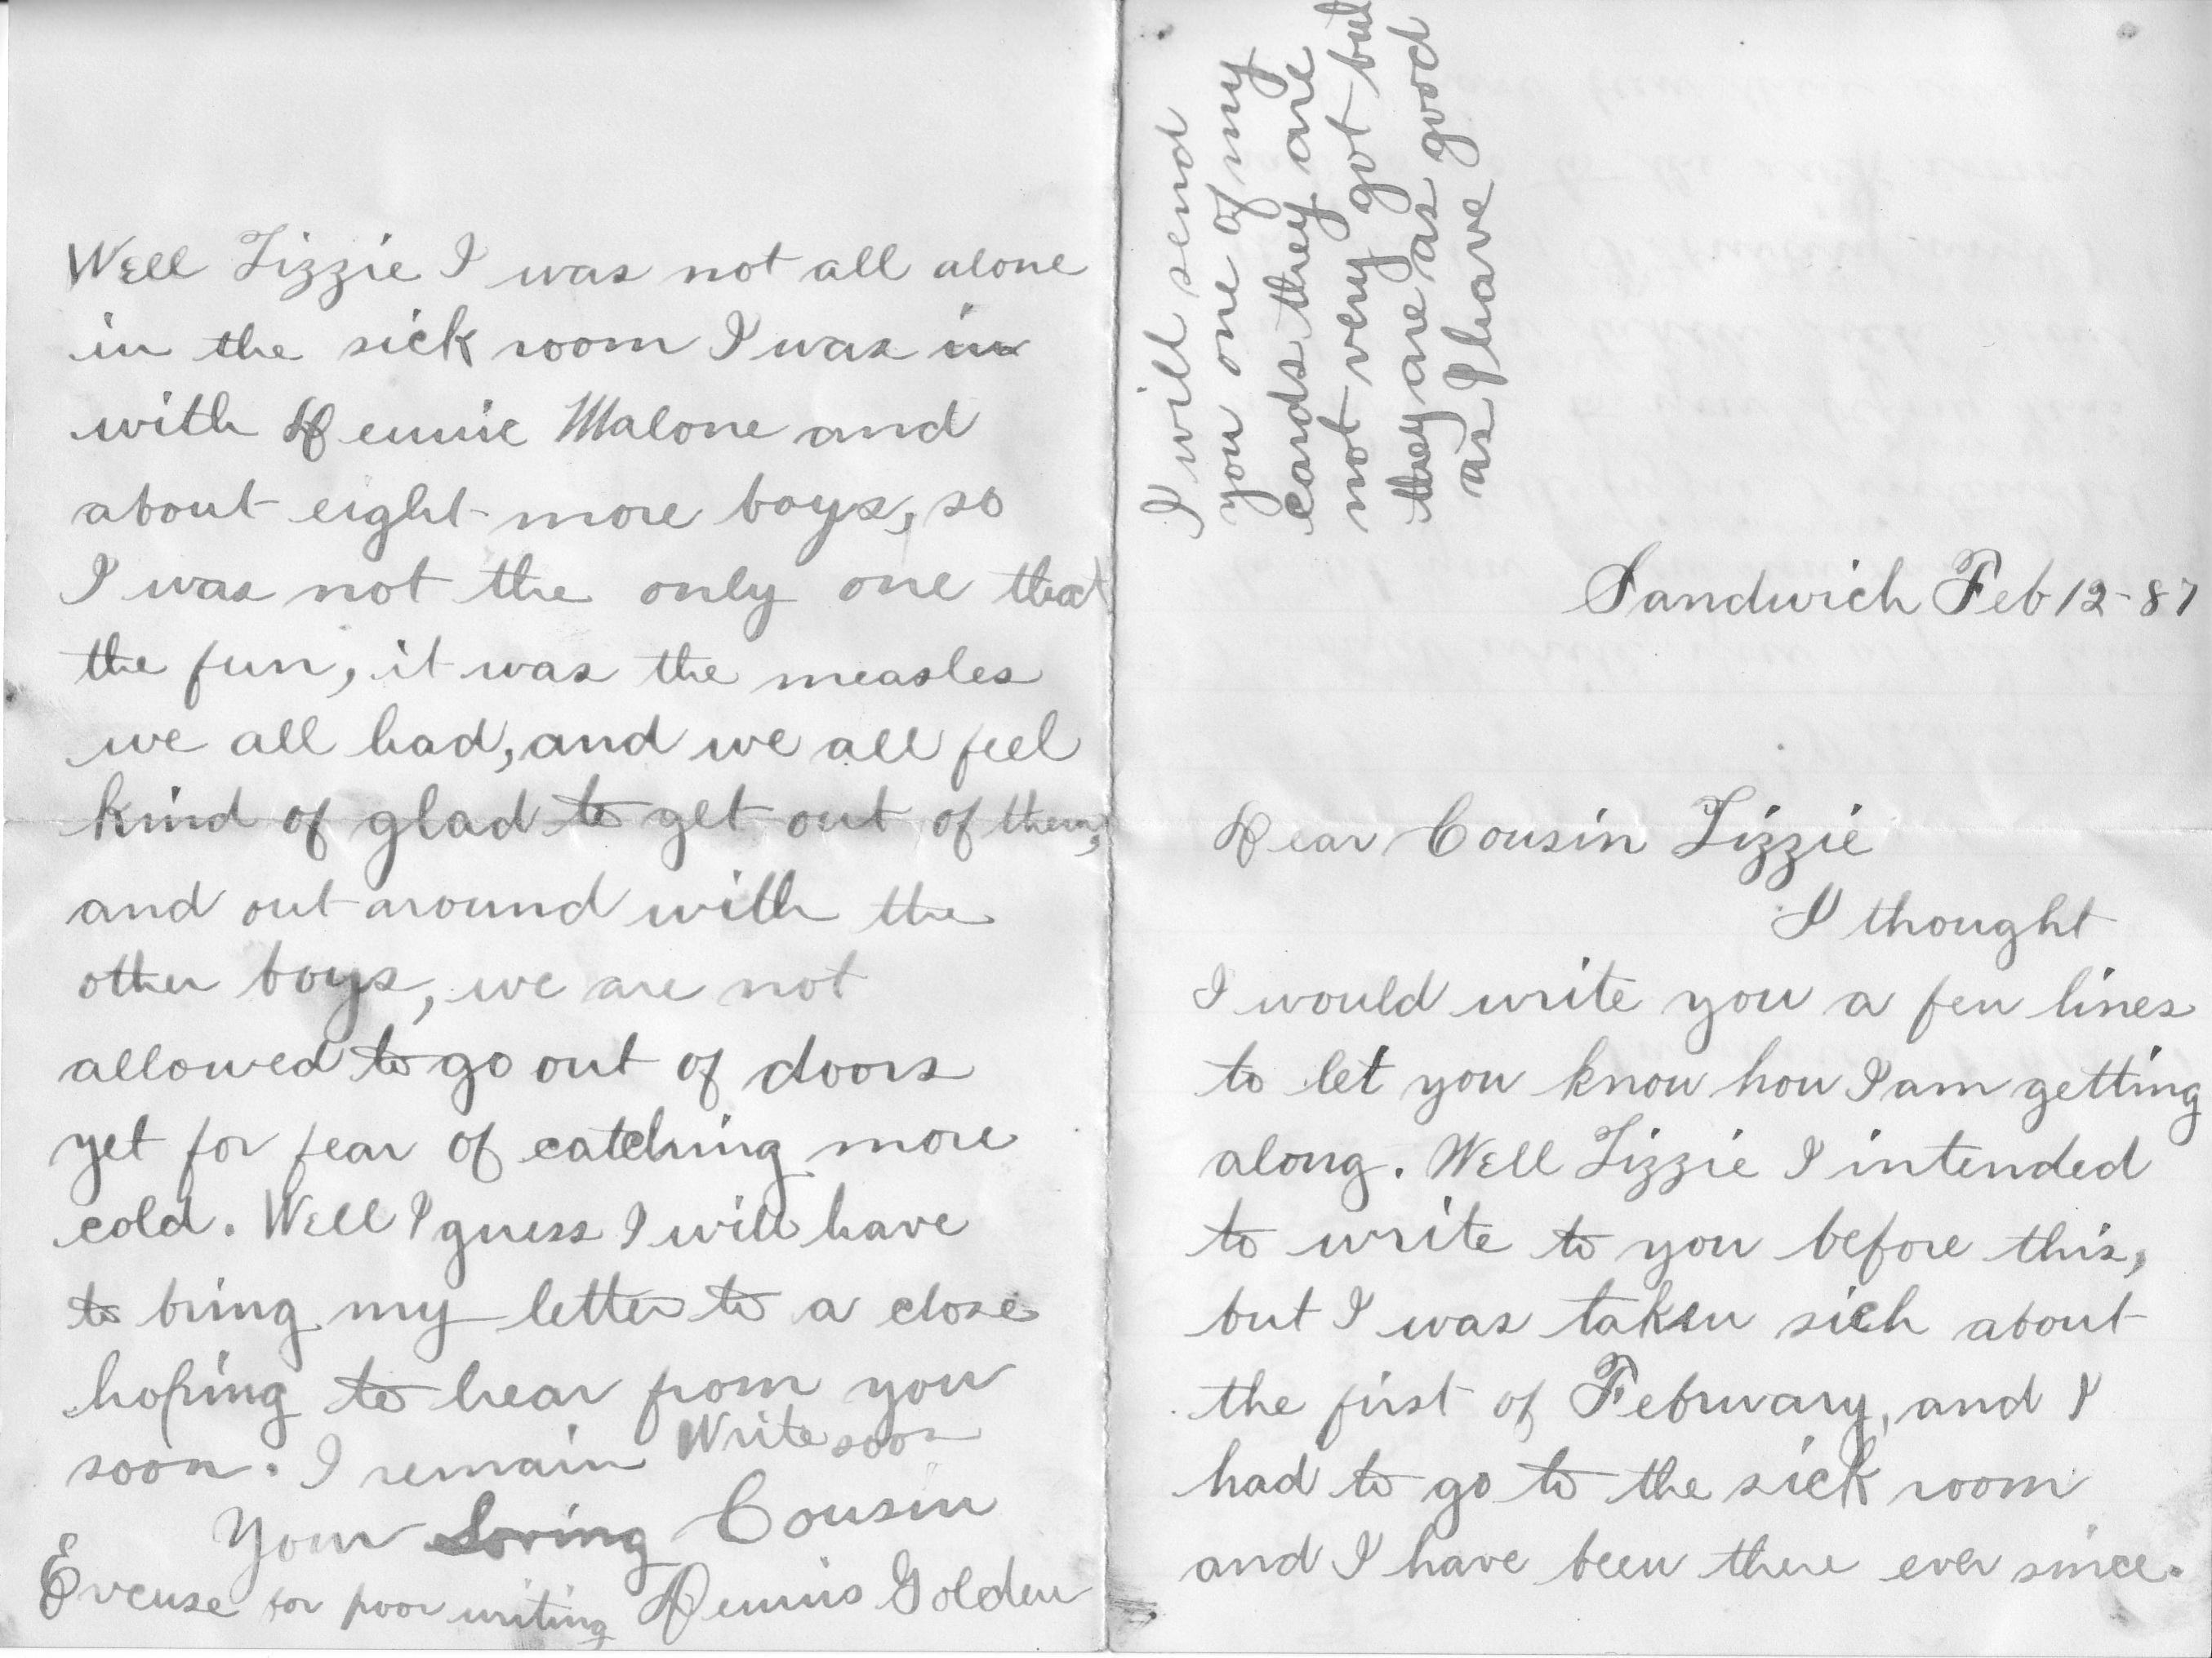 Sandwich Feb 12-87
Dear Cousin Lizzie
I thought
I would write you a few lines
to let you know how I am getting
along. Well Lizzie I intended
to write to you before this,
but I was taken sick about
the first of February, and I
had to go to the sick room
and I have been there ever since.
Well Lizzie I was not all alone
in the sick room I was in
with Dennie Malone and
about eight more boys, so
I was not the only one that
the fun, it was the measles
we all had, and we all feel
kind of glad to get out of them,
and out around with the
other boys, we are not
allowed to go out of doors
yet for fear of catching more
cold. Well I guess I will have
to bring my letter to a close
hoping to hear from you
soon. I remain Write soon
Your Loving Cousin
Excuse for poor writing Dennis Golden
I will send
you one of my
cards they are
not very got but
they are as good
as I have